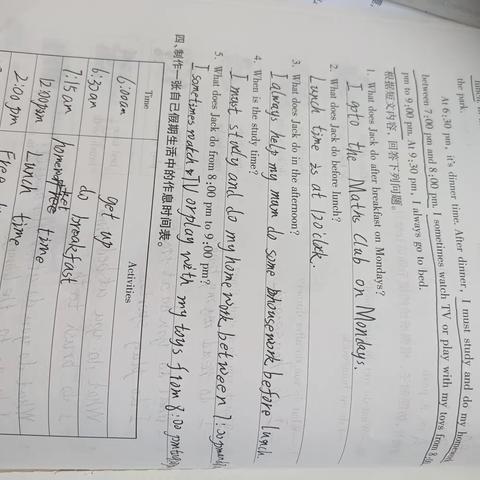 the park.
At 6:30 pm, it's dinner time. After dinner, I must study and do my homework
between 7:00 pm and 8:00 pm. I sometimes watch TV or play with my toys from 8:00
pm to 9:00 pm. At 9:30 pm, I always go to bed.
根据短文内容，回答下列问题。
1. What does Jack do after breakfast on Mondays?
I go to the Maths Club on Mondays.
2. What does Jack do before lunch?
Lunch time is at 12 o'clock.
3. What does Jack do in the afternoon?
I always help my mum do some housework before lunch.
4. When is the study time?
I must study and do my homework between 7:00 pm and
5. What does Jack do from 8:00 pm to 9:00 pm?
I sometimes watch TV or play with my toys from 8:00 pm to
四、制作一张自己假期生活中的作息时间表。
Time Activities
6:00am get up
6:30am do breakfast
7:15am time
12:00pm lunch time
2:00pm Free